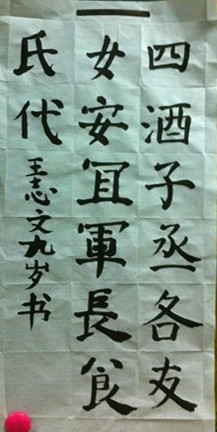 四酒子丞各友
女安冝軍長食
氏代
王志文九岁书